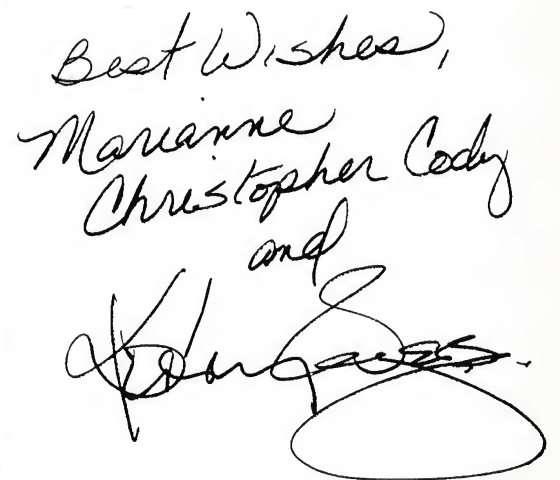 Best Wishes,
Marianne
Christopher Cody
and